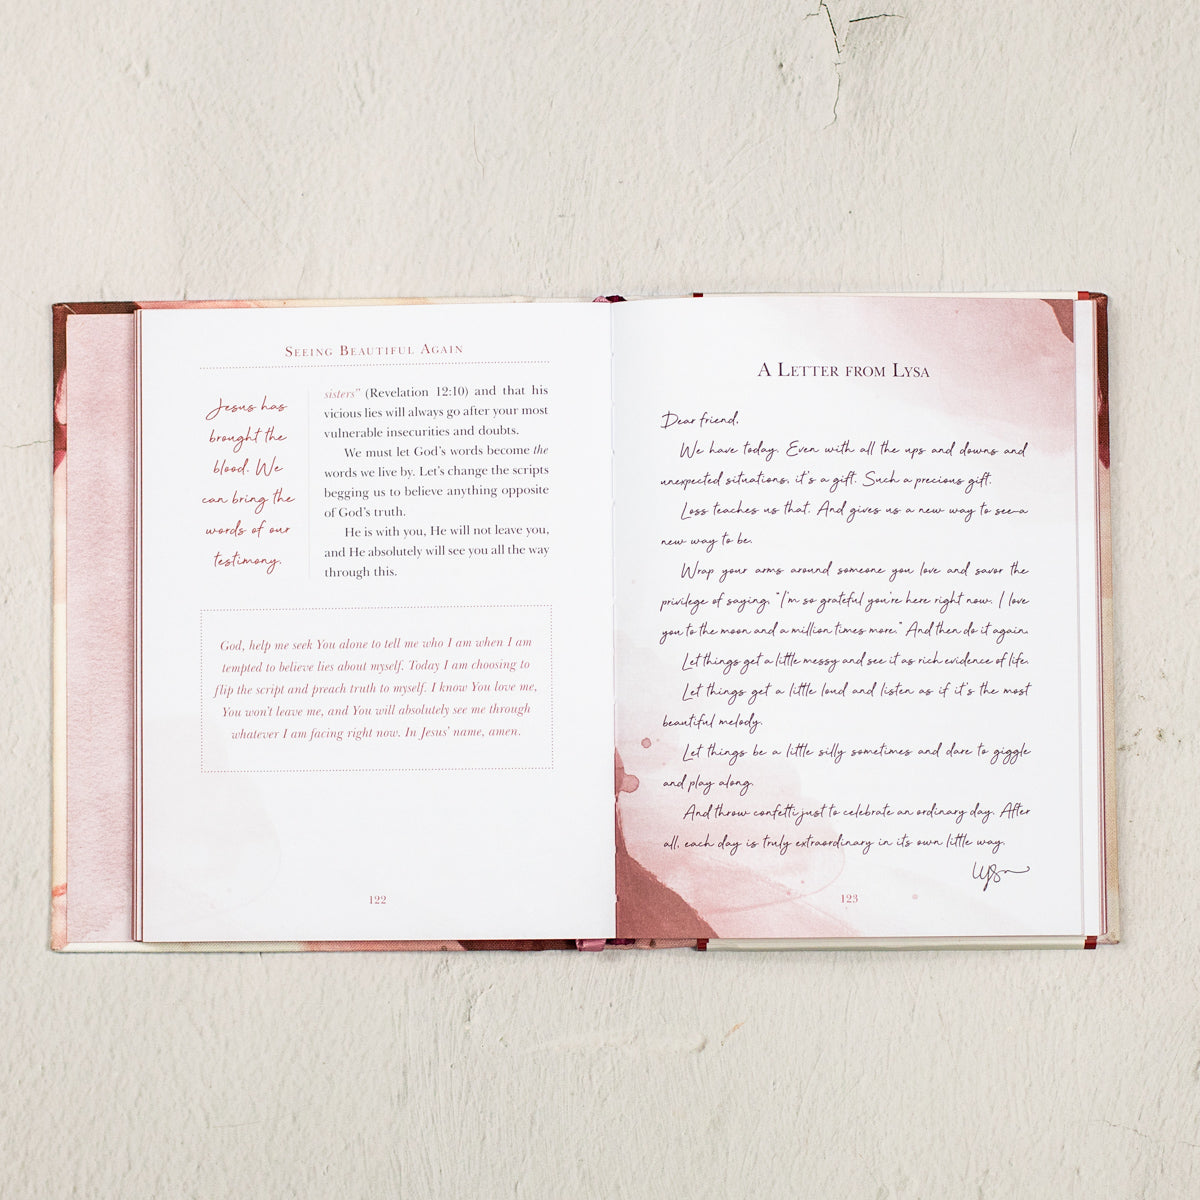 SEEING BEAUTIFUL AGAIN
Jesus has
brought the
blood. We
can bring the
words of our
testimony.
sisters” (Revelation 12:10) and that his
vicious lies will always go after your most
vulnerable insecurities and doubts.
We must let God’s words become the
words we live by. Let’s change the scripts
begging us to believe anything opposite
of God’s truth.
He is with you, He will not leave you,
and He absolutely will see you all the way
through this.
God, help me seek You alone to tell me who I am when I am
tempted to believe lies about myself. Today I am choosing to
flip the script and preach truth to myself. I know You love me,
You won’t leave me, and You will absolutely see me through
whatever I am facing right now. In Jesus’ name, amen.
122
A LETTER FROM LYSA
Dear friend,
We have today. Even with all the ups and downs and
unexpected situations, it’s a gift. Such a precious gift.
Loss teaches us that. And gives us a new way to see—a
new way to be.
Wrap your arms around someone you love and savor the
privilege of saying, “I’m so grateful you’re here right now. I love
you to the moon and a million times more.” And then do it again.
Let things get a little messy and see it as rich evidence of life.
Let things get a little loud and listen as if it’s the most
beautiful melody.
Let things be a little silly sometimes and dare to giggle
and play along.
And throw confetti just to celebrate an ordinary day. After
all, each day is truly extraordinary in its own little way.
Lysa
123